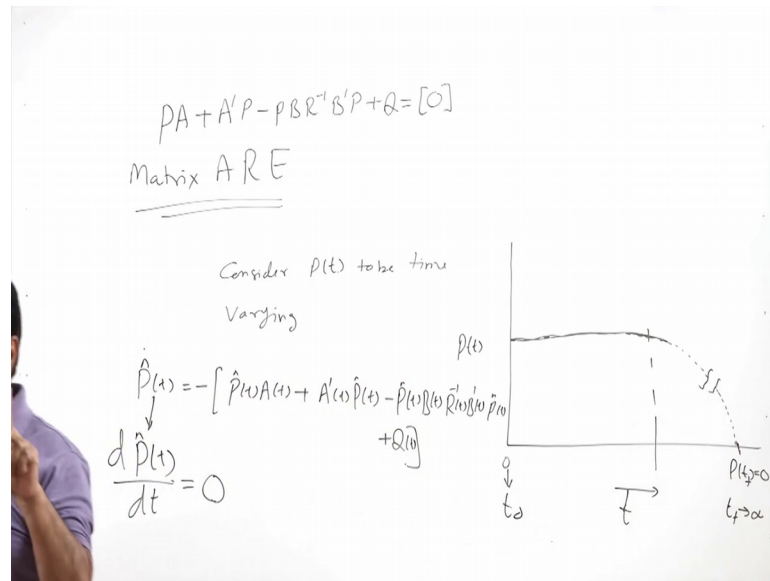 PA + A'P - PBR⁻¹B'P + Q = [0]
Matrix ARE
Consider P(t) to be time
Varying
P(t)
\dot{\hat{P}}(t) = -[ \hat{P}(t)A(t) + A'(t)\hat{P}(t) - \hat{P}(t)B(t)R⁻¹(t)B'(t)\hat{P}(t)
+Q(t)]
d\hat{P}(t)/dt = 0
0
t₀
t
P(t_f)=0
t_f→α